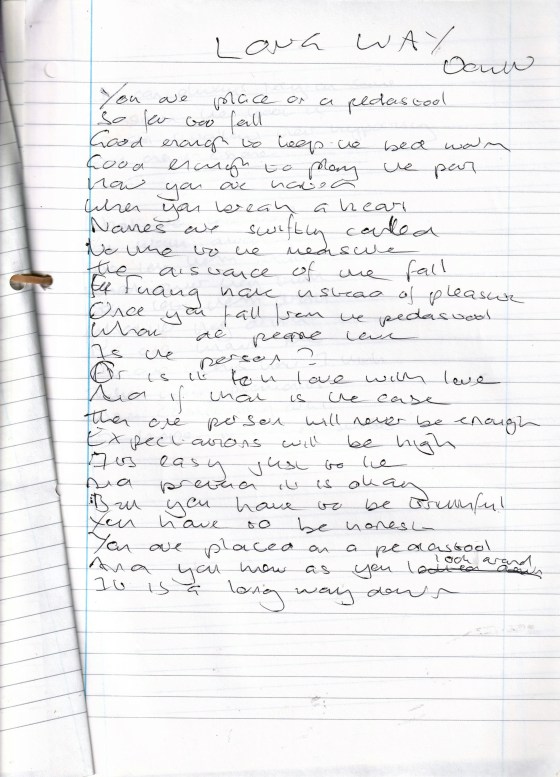 LONG WAY
DOWN
You are place on a pedastool
So far too fall
Good enough to keep the bed warm
Good enough to play the part
Now you are hated
When you break a heart
Names are swiftly called
No time to the measure
the distance of the fall
Finding hate instead of pleasure
Once you fall from the pedastool
What do people love
Is the person?
Or is it to love with love
And if that is the case
Then one person will never be enough
Expectations will be high
It is easy just to lie
And pretend it is okay
But you have to be truthful
You have to be honest
You are placed on a pedastool
And you know as you look around
It is a long way down